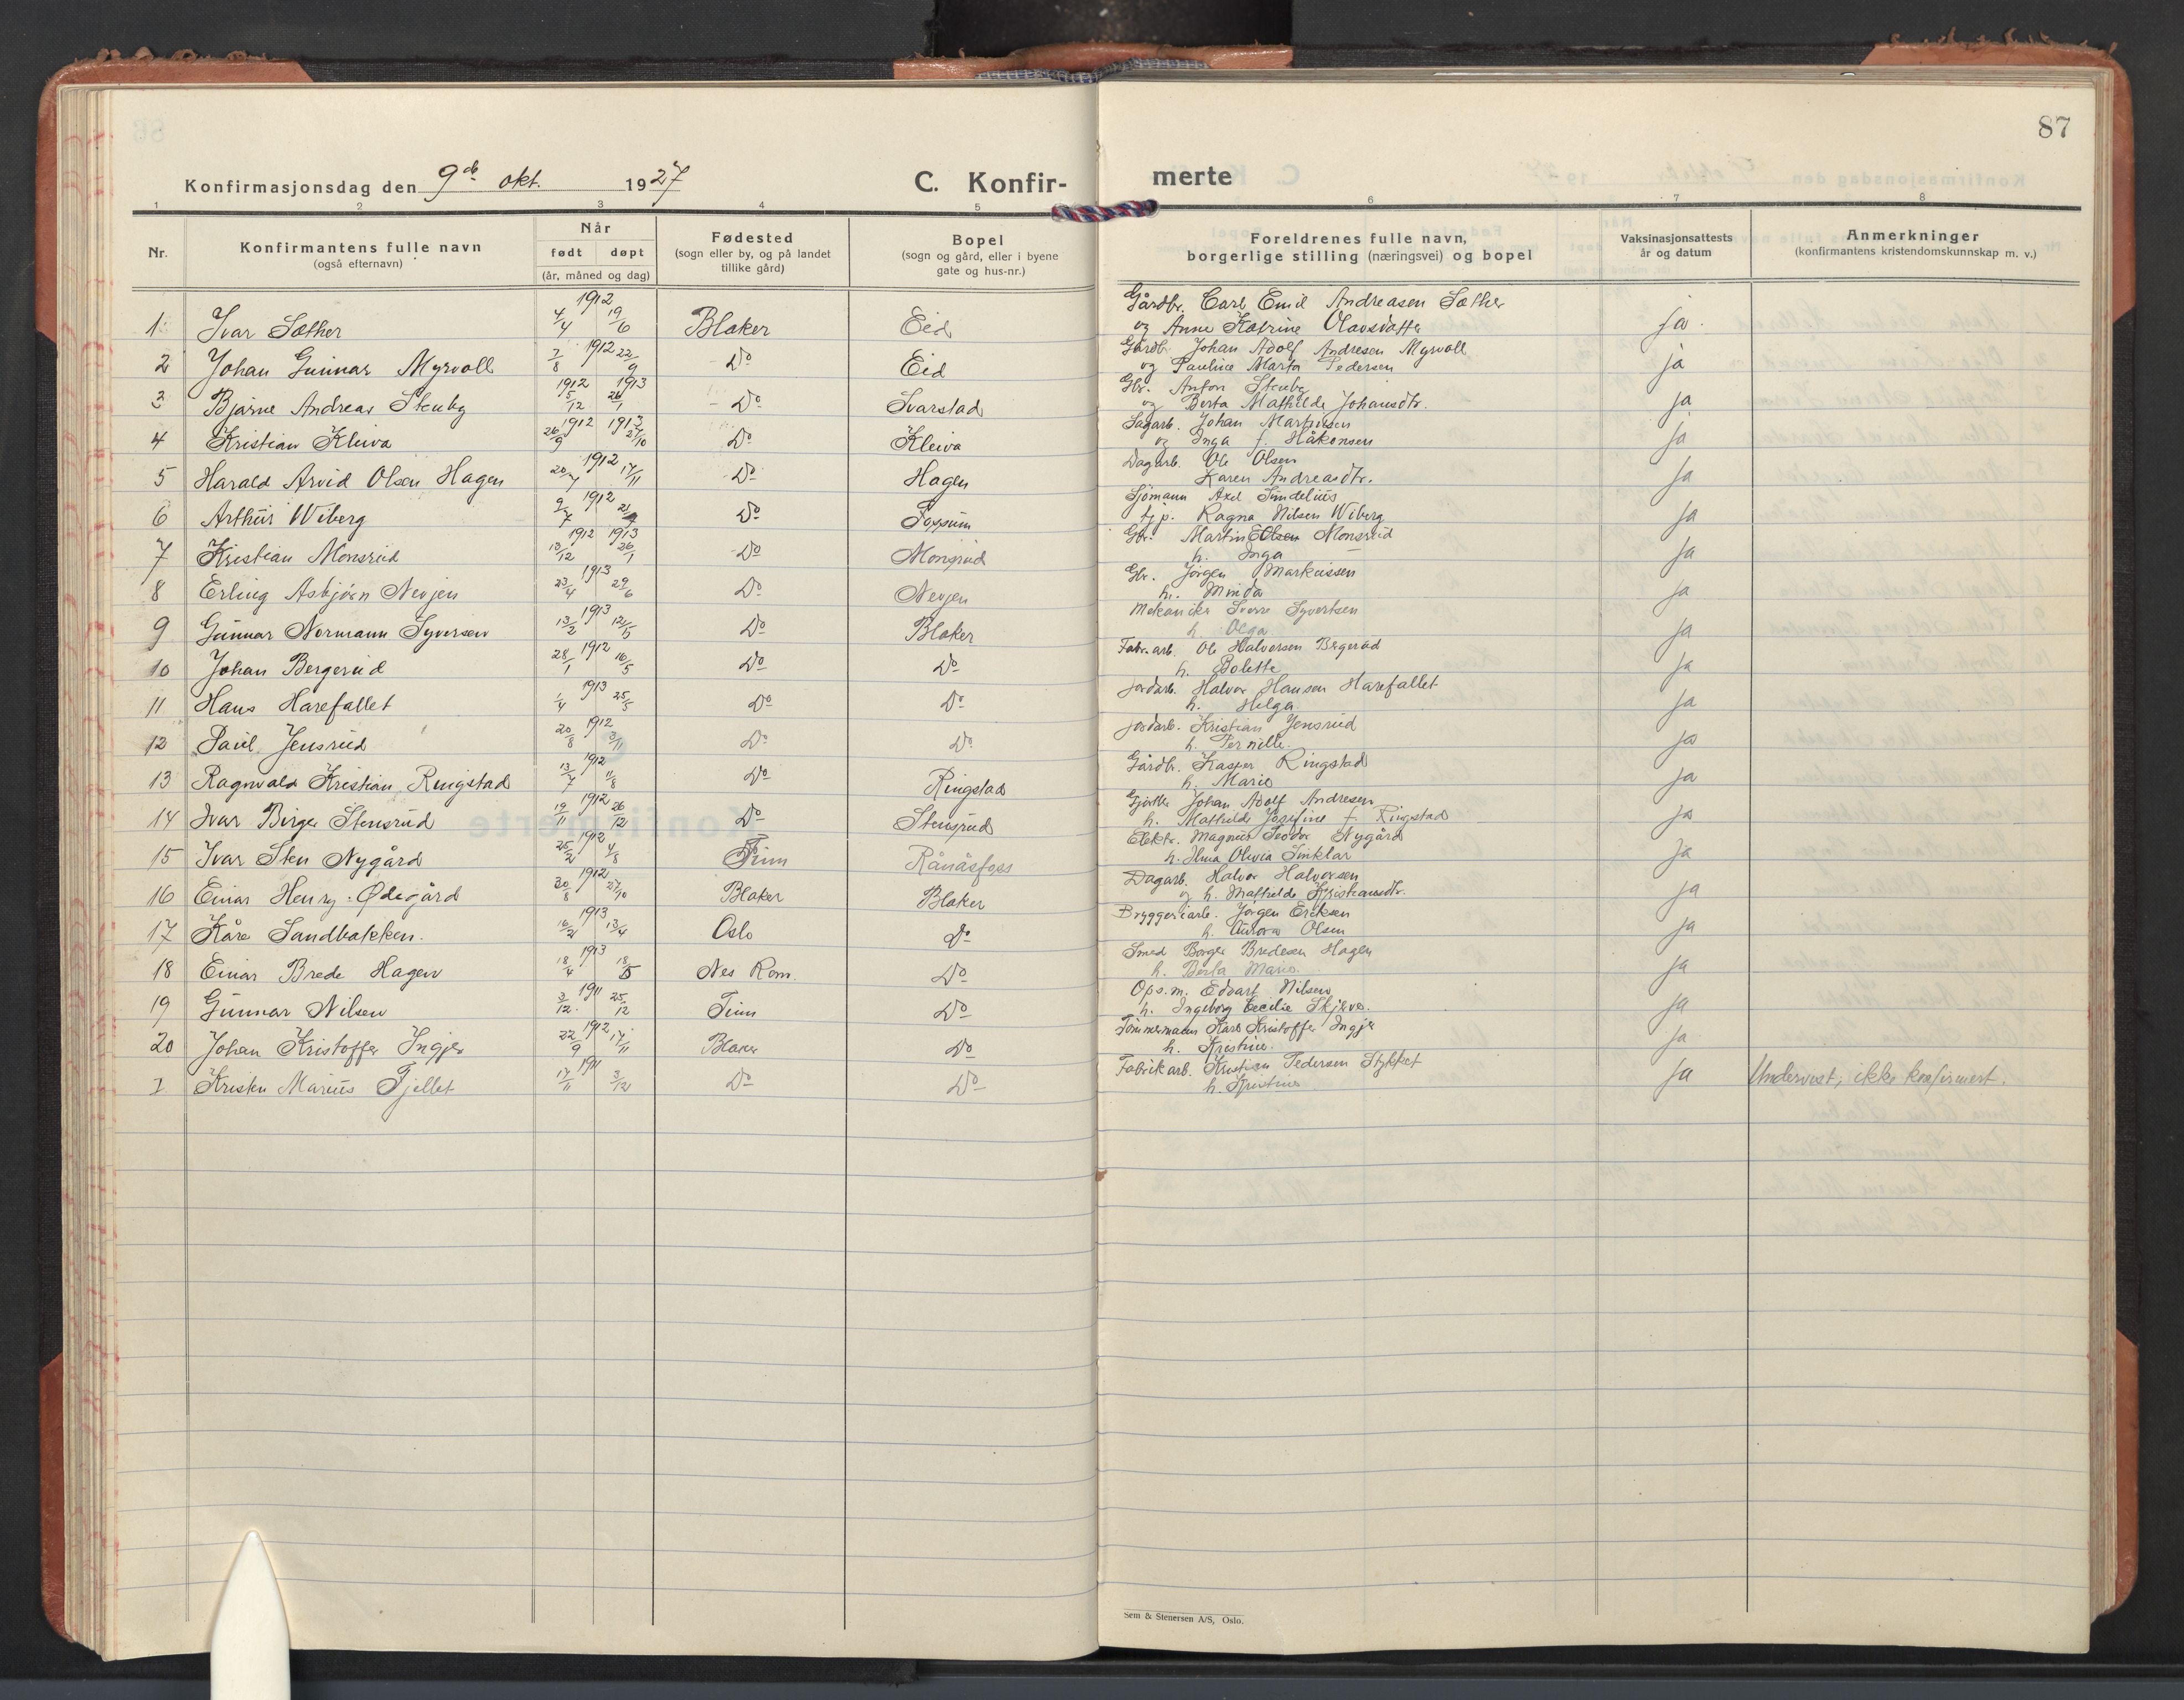 87
Konfirmasjonsdag den 9de okt. 1927 C. Konfir- merte
1 2 3 4 5 6 7 8
Nr. Konfirmantens fulle navn (også efternavn) Når født døpt (år, måned og dag) Fødested (sogn eller by, og på landet tillike gård) Bopel (sogn og gård, eller i byene gate og hus-nr.) Foreldrenes fulle navn, borgerlige stilling (næringsvei) og bopel Vaksinasjonsattests år og datum Anmerkninger (konfirmantens kristendomskunnskap m. v.)
1 Ivar Sæther 1912 4/4 19/6 Blaker Eid Gårdbr. Carl Emil Andreasen Sæther ja.
og Anne Katrine Olavsdatter
2 Johan Gunnar Myrvoll 1912 7/8 22/9 Do Eid Gårdb. Johan Adolf Andresen Myrvoll ja
og Pauline Marta Pedersen
3 Bjarne Andreas Stenby 1912 5/12 1913 26/1 Do Svarstad Gbr. Anton Stenby ja
og Berta Mathilde Johansdtr.
4 Kristian Kleiva 26/9 1912 1913 27/10 Do Kleiva Sagarb. Johan Martinsen ja
og Inga f. Håkonsen
5 Harald Arvid Olsen Hagen 1912 20/7 17/11 Do Hagen Dagarb. Ole Olsen ja
Karen Andreasdtr.
6 Arthur Wiberg 1912 9/7 Do Fossum Sjömann Axel Sundelius ja
tjp. Ragna Nilsen Wiberg
7 Kristian Monsrud 1912 13/12 1913 26/1 Do Monsrud Gbr. Martin E Olsen Monsrud ja
h. Inga
8 Erling Asbjörn Nevjen 1913 23/4 29/6 Do Nevjen Gbr. Jörgen Markussen ja
h. Minda
9 Gunnar Normann Syversen 1913 13/2 12/5 Do Blaker Mekaniker Sverre Syvertsen ja
h. Olga
10 Johan Bergerud 1912 28/1 16/5 Do Do Fabr.arb. Ole Halvorsen Bergerud ja
h. Bolette
11 Hans Harefallet 1913 1/4 25/5 Do Do Jordarb. Halvor Hansen Harefallet ja
h. Helga
12 Paul Jensrud 1912 20/8 3/11 Do Do Jordarb. Kristian Jensrud ja
h. Pernille.
13 Ragnvald Kristian Ringstad 1912 13/7 11/8 Do Ringstad Gårdb. Kasper Ringstad ja
h. Marie
14 Ivar Birger Stensrud 1912 19/11 26/12 Do Stensrud Gjörtler Johan Adolf Andresen ja
h. Mathilde Josefine f. Ringstad
15 Ivar Sten Nygård 1912 25/2 4/8 Tinn Rånåsfoss Elektr. Magnus Teodor Nygård ja
h. Alma Olivia Sinklar
16 Einar Henry Ødegård 1912 30/8 27/10 Blaker Blaker Dagarb. Halvor Halvorsen ja
og h. Mathilde Kristiansdtr.
17 Kåre Sandbakken. 1913 16/2 13/4 Oslo Do Bryggeriarb. Jörgen Eriksen ja
h. Aurora Olsen
18 Einar Brede Hagen 1913 18/4 18/5 Nes Rom. Do Smed Borger Bredesen Hagen ja
h. Berla Marie.
19 Gunnar Nilsen 1911 3/12. 25/12 Tinn Do Ops.m. Edvart Nilsen ja
h. Ingeborg Cecilie Skjerve.
20 Johan Kristoffer Ingjer 1912 22/9 17/11 Blaker Do Tömmermann Karl Kristoffer Ingjer ja
h. Kristine.
I Kristen Marius Fjellet 1911 17/11 3/12 Do Do Fabrikarb. Kristian Pedersen Stykket ja Undervist, ikke konfirmert.
h. Kristine
Sem & Stenersen A/S, Oslo.